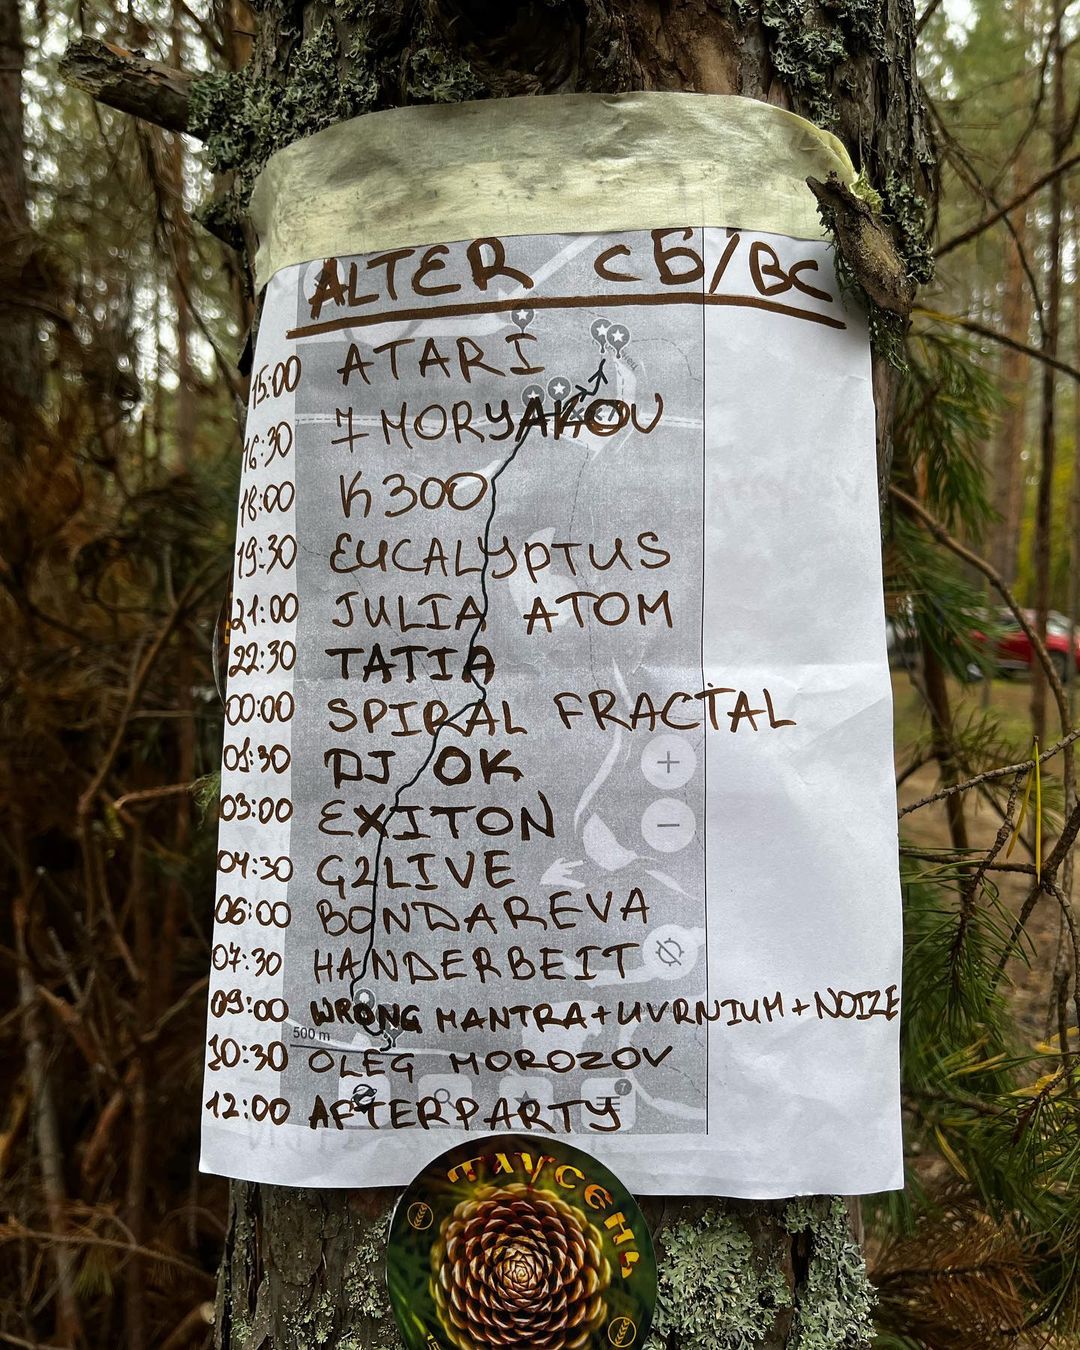 ALTER СБ/ВС
15:00 ATARI
16:30 7 MORYAKOV
18:00 K300
19:30 EUCALYPTUS
21:00 JULIA ATOM
22:30 TATIA
00:00 SPIRAL FRACTAL
01:30 DJ OK
03:00 EXITON
04:30 G2LIVE
06:00 BONDAREVA
07:30 HANDERBEIT
09:00 WRONG MANTRA + UVRNIUM + NOIZE
500 m
10:30 OLEG MOROZOV
7
12:00 AFTERPARTY
ТАУСЕНЬ